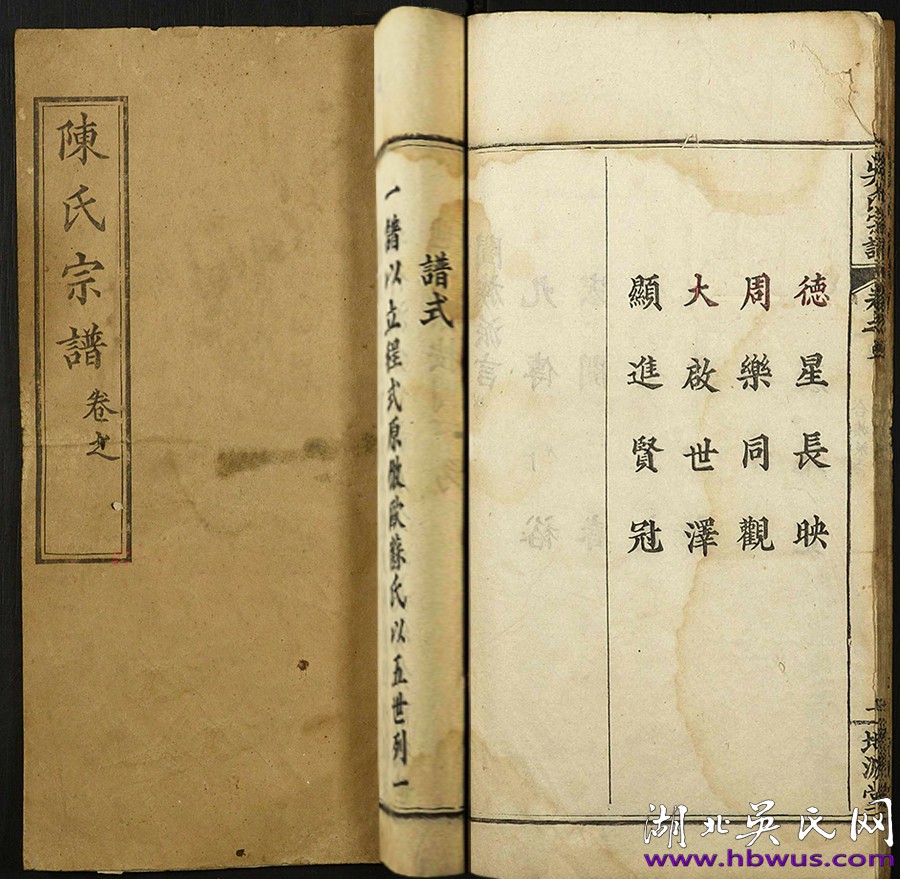 陳氏宗譜
卷之
德星長映
周樂同觀
大啟世澤
顯進賢冠
譜式
一譜以立程式原倣歐蘇氏以五世列一
吳氏宗譜
卷之
湖北吳氏网
www.hbwus.com